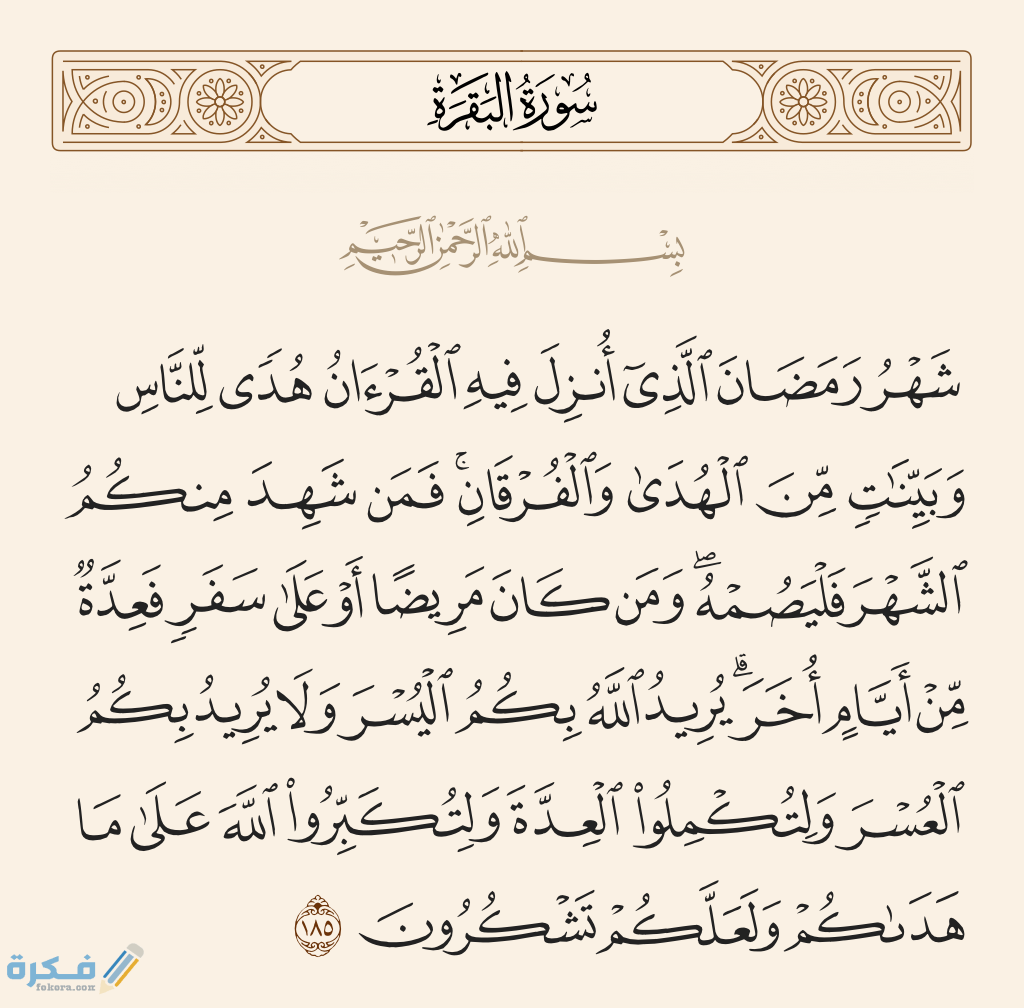 سُورَةُ البَقَرَةِ
بِسْمِ ٱللَّهِ ٱلرَّحْمَٰنِ ٱلرَّحِيمِ
شَهْرُ رَمَضَانَ ٱلَّذِىٓ أُنزِلَ فِيهِ ٱلْقُرْءَانُ هُدًى لِّلنَّاسِ
وَبَيِّنَٰتٍ مِّنَ ٱلْهُدَىٰ وَٱلْفُرْقَانِ ۚ فَمَن شَهِدَ مِنكُمُ
ٱلشَّهْرَ فَلْيَصُمْهُ ۖ وَمَن كَانَ مَرِيضًا أَوْ عَلَىٰ سَفَرٍ فَعِدَّةٌ
مِّنْ أَيَّامٍ أُخَرَ ۗ يُرِيدُ ٱللَّهُ بِكُمُ ٱلْيُسْرَ وَلَا يُرِيدُ بِكُمُ
ٱلْعُسْرَ وَلِتُكْمِلُوا۟ ٱلْعِدَّةَ وَلِتُكَبِّرُوا۟ ٱللَّهَ عَلَىٰ مَا
هَدَىٰكُمْ وَلَعَلَّكُمْ تَشْكُرُونَ ١٨٥
فكرة
fokora.com